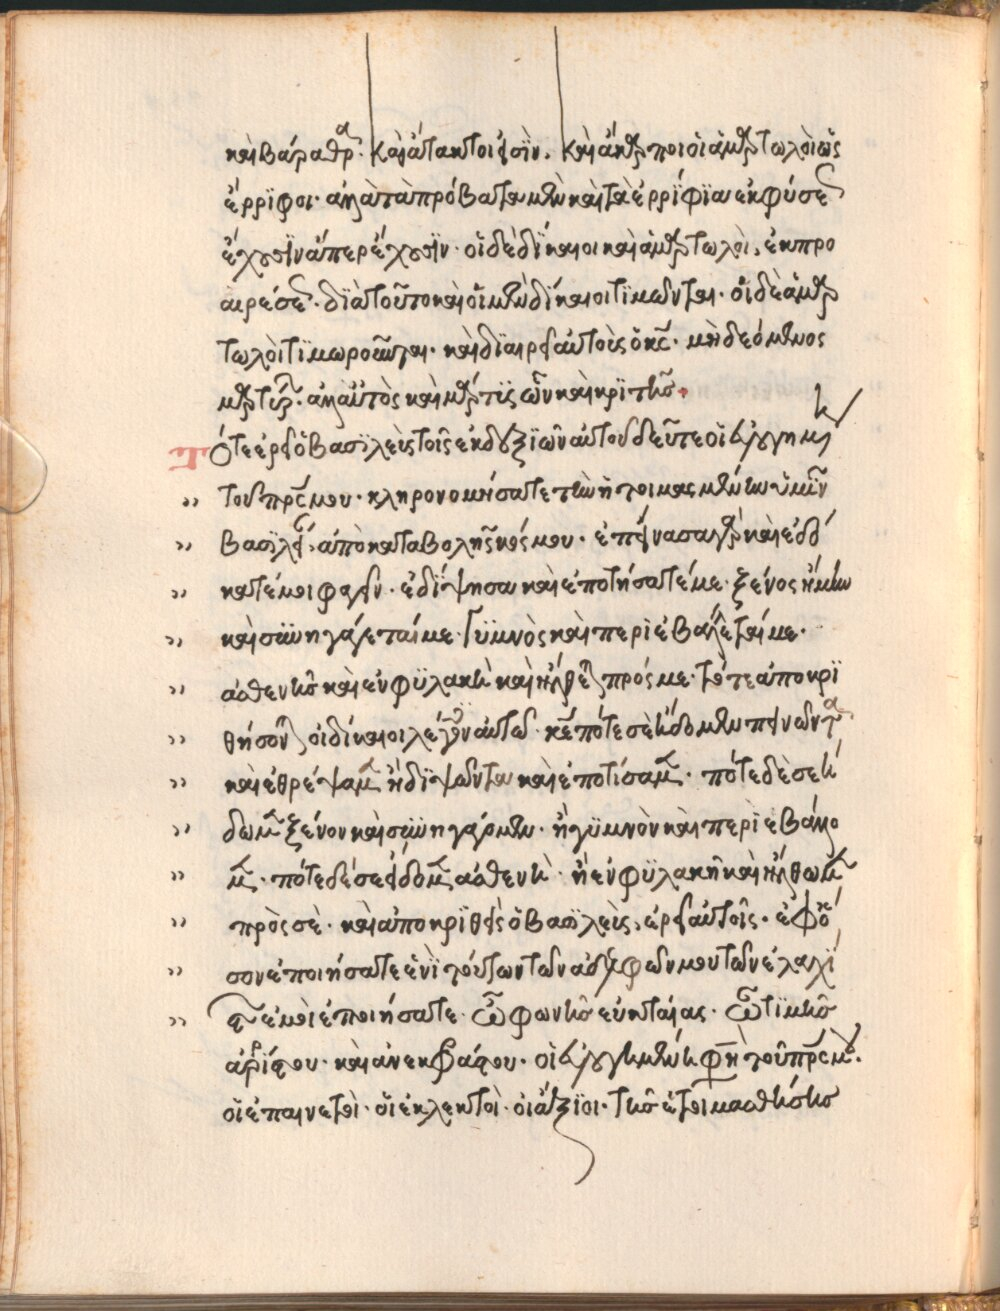 καὶ βάραθρα. καὶ ἄτακτοι φύσιν. καὶ ἄκαρποι οἱ ἁμαρτωλοὶ ὡς
ἐρρίφοι· ἀλλὰ τὰ πρόβατα μὲν καὶ τὰ ἐρρίφϊα ἐκ φύσεως
ἔχουσϊν ἅπερ ἔχουσϊν· οἱ δὲ δίκαιοι καὶ ἁμαρτωλοὶ, ἐκ προ
αιρέσεως· δϊὰ τοῦτο καὶ οἱ μὲν δίκαιοι τϊμῶνται· οἱ δὲ ἁμαρ
τωλοὶ τϊμωροῦνται· καὶ δϊαιρεῖ αὐτοὺς ὁ κς· μὴ δεόμενος
μαρτύρων· ἀλλ' αὐτὸς καὶ μάρτϊς ὢν καὶ κρϊτής·
Τότε ἐρεῖ ὁ βασϊλεὺς τοῖς ἐκ δεξϊῶν αὐτοῦ δεῦτε οἱ εὐλογημένοι
τοῦ πρς μου· κληρονομήσατε τὴν ἡτοιμασμένην ὑμῖν
βασϊλείαν, ἀπὸ καταβολῆς κόσμου· ἐπείνασα γὰρ καὶ ἐδώ
κατέ μοι φαγεῖν· ἐδίψησα καὶ ἐποτήσατέ με· ξένος ἤμην
καὶ σϋνηγάγεταί με· Γϋμνὸς καὶ περιεβάλεταί με·
ἀσθενὴς καὶ ἐν φϋλακῆ καὶ ἤλθετε πρός με· τότε ἀποκρϊ
θήσονται οἱ δίκαιοι λέγοντες αὐτῶ· κε πότε σὲ εἴδομεν πεινῶντα
καὶ ἐθρέψαμεν ἢ δϊψῶντα καὶ ἐποτίσαμεν· πότε δὲ σὲ εἴ
δωμεν ξένον καὶ σϋνηγάγομεν· ἢ γϋμνὸν καὶ περϊεβάλο
μεν· πότε δέ σε εἴδομεν ἀσθενῆ· ἢ ἐν φϋλακῆ καὶ ἤλθωμεν
πρὸς σὲ· καὶ ἀποκρϊθεὶς ὁ βασϊλεὺς, ἐρεῖ αὐτοῖς· ἐφ' ὅ
σον ἐποιήσατε ἑνὶ τούτων τῶν ἀδελφῶν μου τῶν ἐλαχί
στων ἐμοὶ ἐποιήσατε· ὢ φωνῆς εὐκταίας· ὢ τϊμῆς
ἀρρίφου· καὶ ἀνεκφράσου· οἱ εὐλογημένοι φη τοῦ πρς μου·
οἱ ἐπαινετοὶ· οἱ ἐκλεκτοὶ· οἱ ἄξϊοι· τῆς ἑτοιμασθείσης